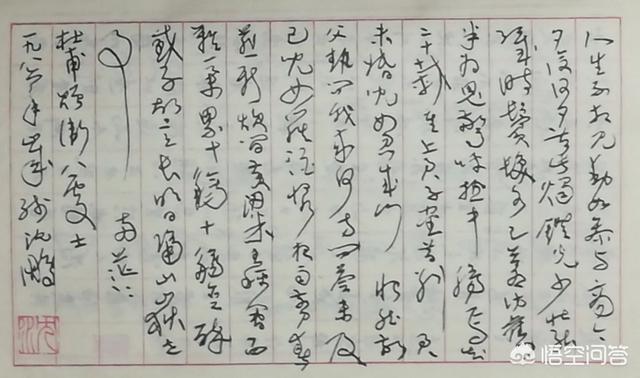 人生不相见动如参与商今
夕复何夕共此光少壮能
几时鬓发各已苍访旧
半为鬼惊呼热中肠焉知
二十载重上君子堂昔别君
未婚儿女忽成行怡然敬
父执问我来何方问答未及
已儿女罗酒浆夜雨剪春
韭新炊间黄粱主称会面
难一举累十觞十觞亦不醉
感子故意长明日隔山岳世
事两茫茫
杜甫赠卫八处士
一九八六年沈鹏
悟空问答